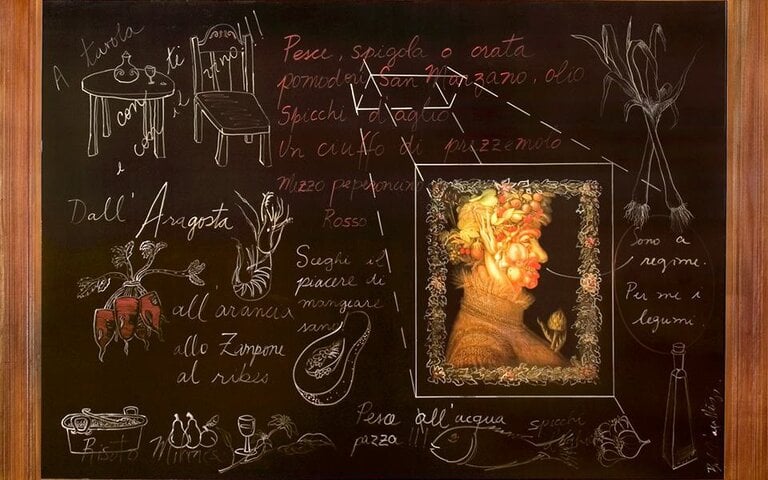 A tavola
con te
e con il
vino!!!
Pesce, spigola o orata
pomodori San Marzano, olio
Spicchi d'aglio
Un ciuffo di prezzemolo
Mizzo peperoncino
Rosso
Dall'Aragosta
all'arancia
allo Zampone
al ribes
Sceghi il
piacere di
mangiare
sano
sono a
regime.
Per me i
legumi
Risoto
Pesce all'acqua
pazza!!!
spicchi